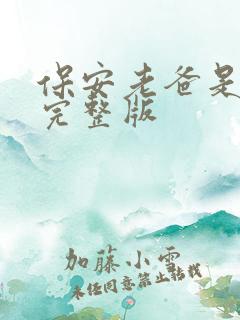 保安老爸是
完整版
加藤小雪
未经同意禁止转载